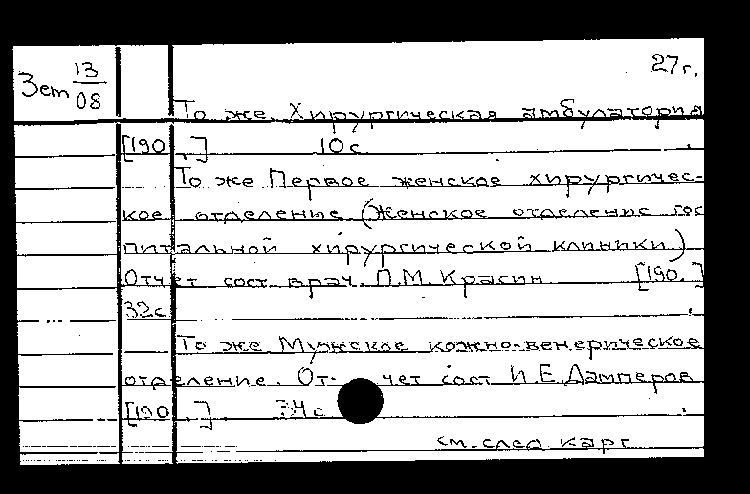 27г.
Зет 13/08
То же. Хирургическая амбулатория
[190 . ] 10с
То же Первое женское хирургичес-
кое отделение (Женское отделение гос
питальной хирургической клиники)
Отчет сост. врач. П.М. Красин [190. ]
32с
То же Мужское кожно-венерическое
отделение. От- чет сост И.Е. Дамперов
[190 . ] с
см. след карт